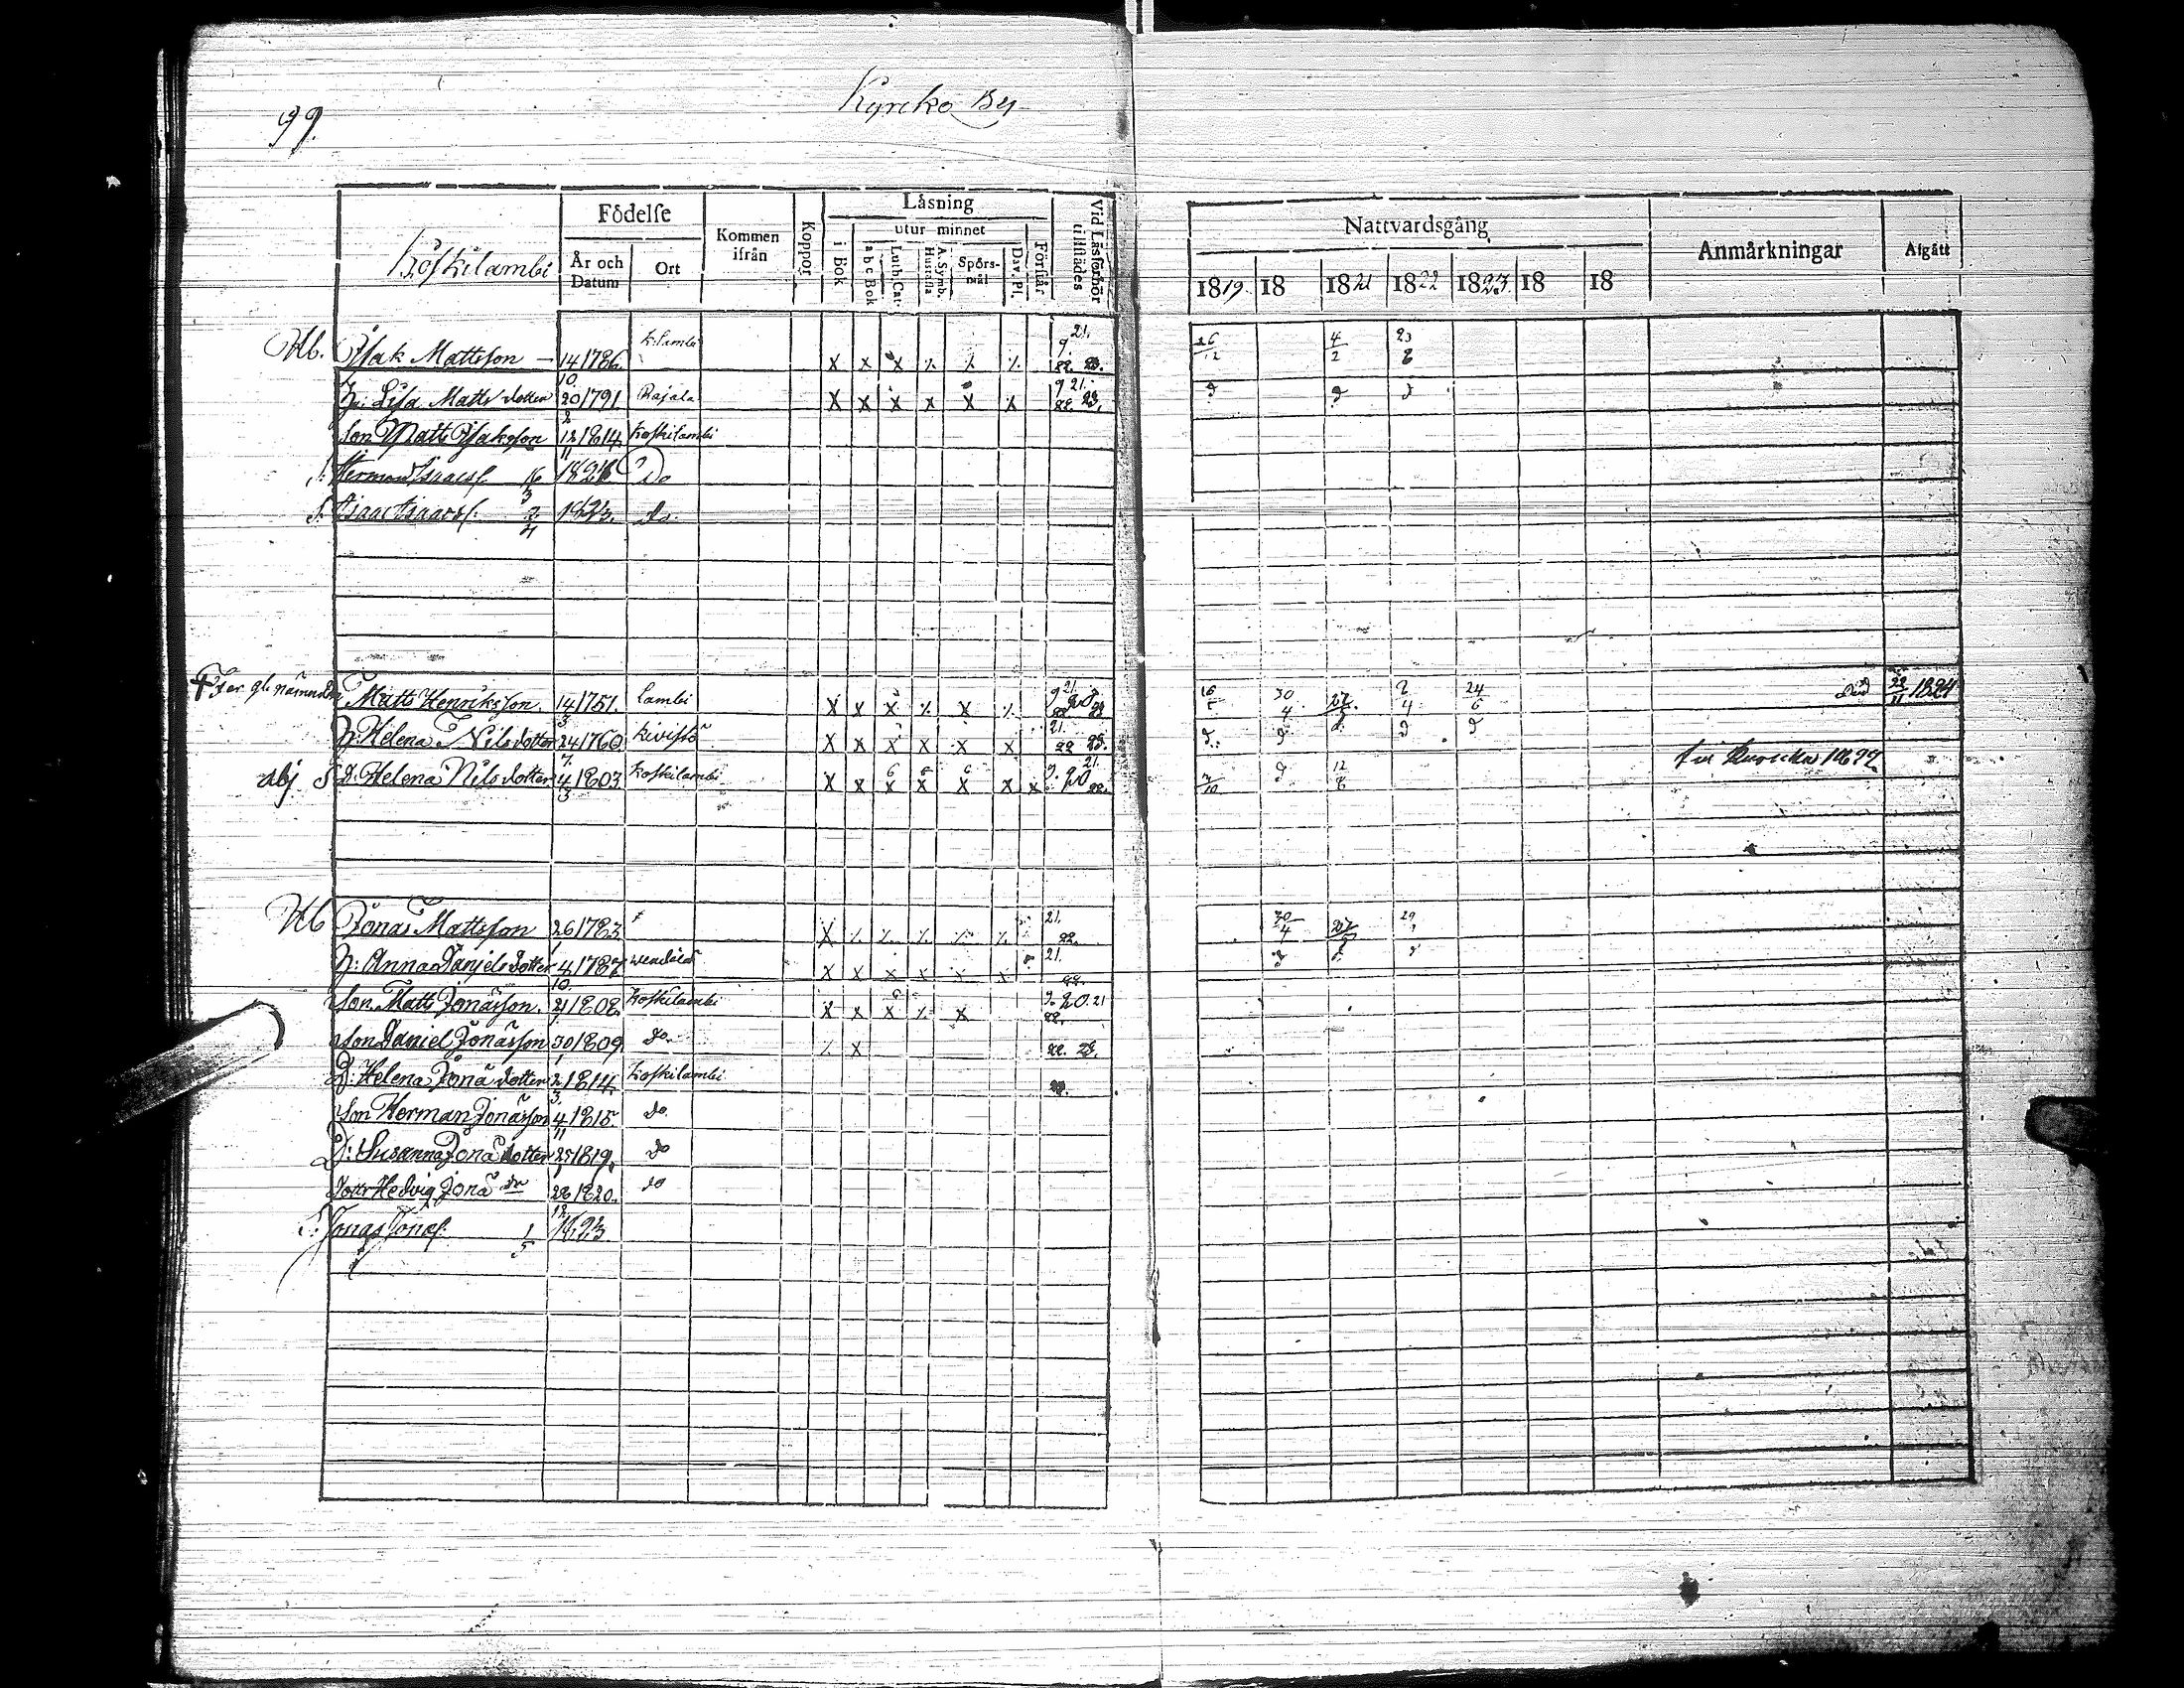 99.
Kyrcko By
Koskilambi
Födelse
År och Datum
Ort
Kommen ifrån
Koppor
Läsning
utur minnet
i Bok
a b c Bok
Luth. Cat.
A. Symb. Hustafla
Spörsmål
Dav. Ps.
Förstår
Vid Läsförhör tillstädes
Nattvardsgång
1819. 18 1821 1822 1823. 18 18
Anmärkningar
Afgått
Isak Mattsson 14/10 1786. x x x 21. 26/12 4/2 23/8
H: Lisa Matts dotter 20/2 1791. Rajala x x x x x x 9 21. 22. 23.
Son Matts Isaksson 12/11 1814 Koskilambi
S. Herman Isaacs. 16/3 Do
S. Isaac Isaacs. 1823. do.
Matts Henriksson. 14/3 1751. Lambi x x x x 21. 16/5 30/4 27/5 2/4 24/6 Död 1824
H: Helena Nilsdotter 24/7 1760 Kivistö x x x x x x 21. 22 23.
D. Helena Nilsdotter 4/3 1803 Koskilambi x x x x x x x 21. 22. 7/10 12/8
Jonas Mattsson 26/1 1783 x 21. 22. 30/4 27/5 29
H: Anna Danjelsdotter 4/10 1787 x x x x x x 21. 22.
Son Matts Jonasson. 21/1 1808 Koskilambi x x x x 9. 20. 21 22.
Son Daniel Jonasson 30/1 1809 Do. x 22. 23.
D: Helena Jonä dotter 2/3 1814 Koskilambi
Son Herman Jonasson 4/11 1815 do
D: Susanna Jonä dotter 25/1 1819. do
Dottr Hedvig Jonä dr 28/12 1820. do
S: Jonas Jonas. 1/5 1823